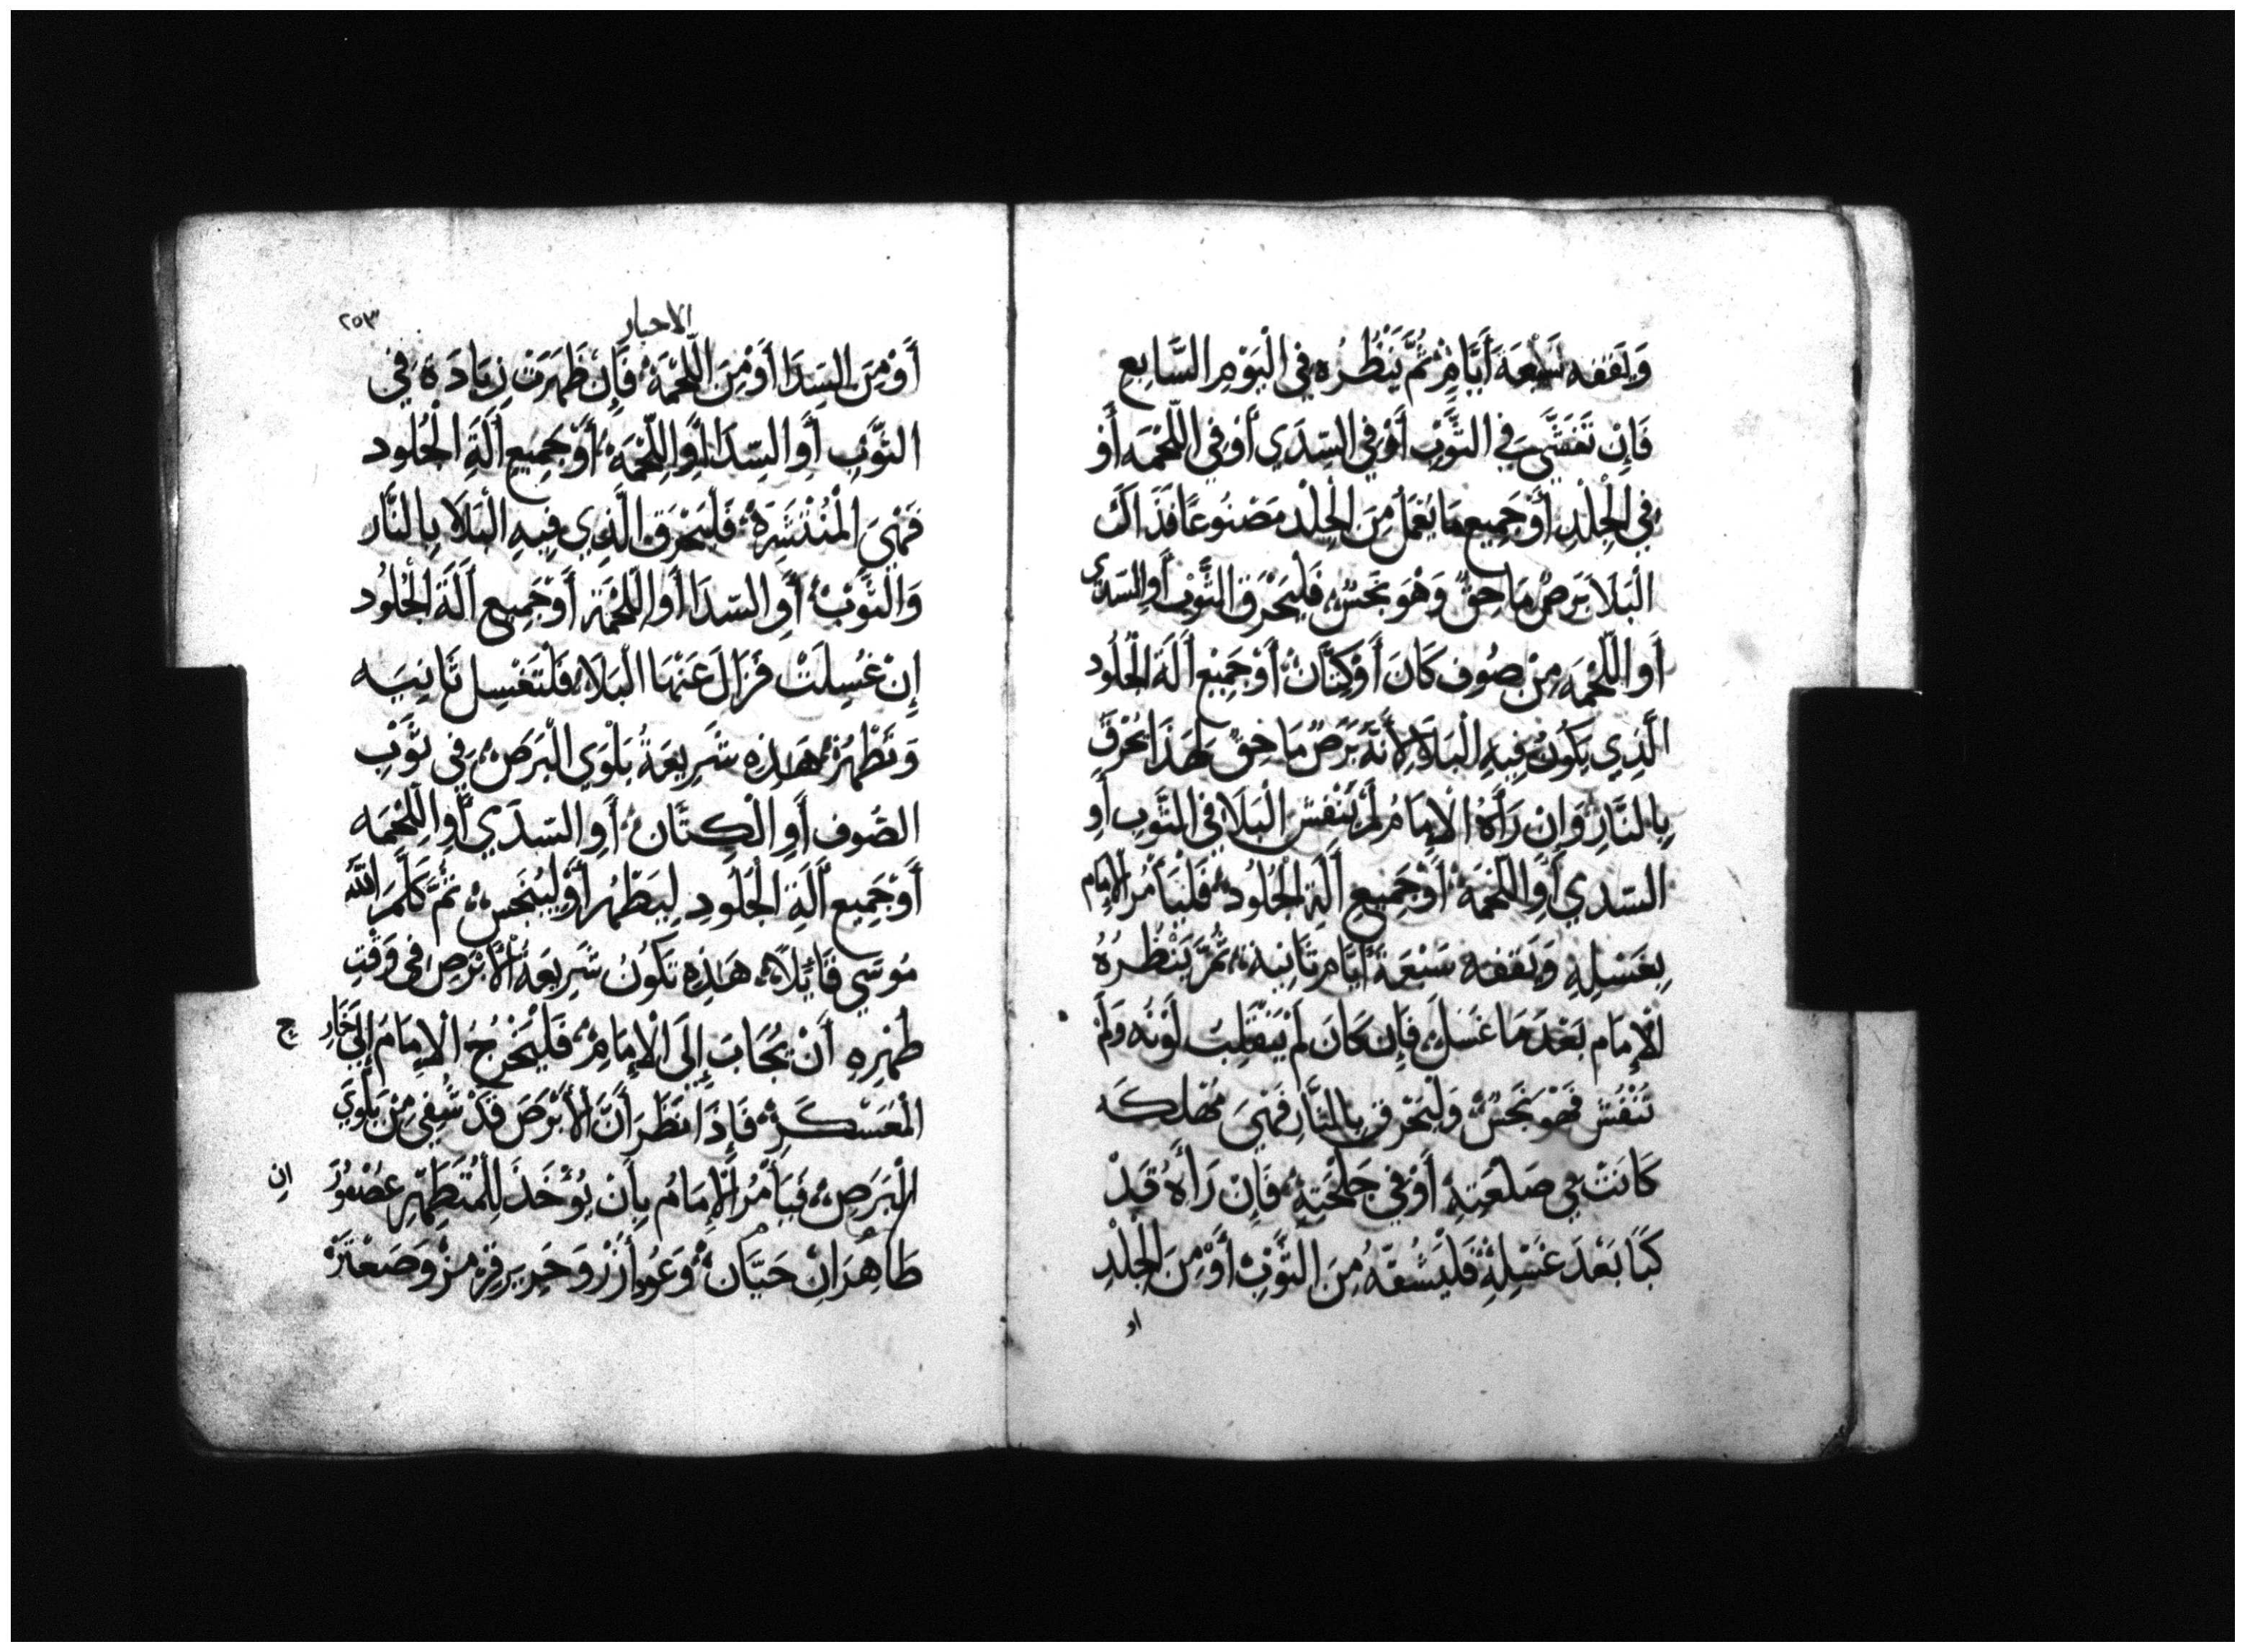 وَيَقفه سَبْعَة أَيَّامٍ ثُمَّ يَنْظُرُه فِي الْيَوْمِ السَّابِعِ
فَإِنْ تَفَشَّى فِي الثَّوْبِ أَوْ فِي السَّدَي أَوْ فِي اللّحْمَه أَوْ
فِي الْجِلْدِ أَوْ جَمِيعِ مَا يُعْمَلُ مِنَ الْجِلْدِ مَصْنُوعًا فَذَاكَ
الْبَلَا بَرَصٌ مَاحِقٌ وَهْوَ نَجَسٌ فَلْيَحْرِقِ الثَّوْبَ أَوِ السَّدَي
أَوِ اللّحْمَه مِنْ صُوفٍ كَانَ أَوْ كِتَّانٍ أَوْ جَمِيْعِ أَلَةِ الْجُلُودِ
الَّذِي يَكُونُ فِيهِ الْبَلَا لِأَنَّهُ بَرَصٌ مَاحِقٌ لِهَذَا يُحْرَقُ
بِالنَّارِ وَإِنْ رَأَهُ الْإِمَامُ لَمْ يَنْفِشِ الْبَلَا فِي الثَّوْبِ أَوِ
السَّدَي أَوِ اللّحْمَةِ أَوْ جَمِيعِ أَلَةِ الْجُلُودِ فَلْيَأْمُرِ الْإِمَام
بِغَسْلِهِ وَيَقفه سَبْعَةَ أَيَّامٍ ثَانِيَة ثُمَّ يَنْظُرُهُ
الْإِمَام بَعْدَ مَا غُسِلَ فَإِن كَانَ لَمْ يَنْقَلِبْ لَوْنُه وَلَمْ
يَنْفُش فَهْوَ نَجَسٌ وَلْيَحْرَق بِالنَّارِ فَهْيَ مُهْلِكَه
كَانَتْ فِي صَلْعَتِهِ أَوْ فِي جَلْحَتِهِ فَإِنْ رَأَهُ قَدْ
كَبَا بَعْدَ غَسْلِهِ فَلْيَشُقّهُ مِنَ الثَّوْبِ أَوْ مِنَ الْجِلْدِ
او
الاحبار
٢٥٣
أَوْ مِنَ السّدَا أَوْ مِنَ اللّحْمَةِ فَإِن ظَهَرَتْ زِيَادَة فِي
الثَّوْبِ أَوِ السّدَا أَوِ اللّحْمَةِ أَوْ جَمِيعِ أَلَةِ الْجُلُود
فَهْيَ الْمُنْتَشِرَةُ فَلْيَحْرِق الَّذِي فِيهِ الْبَلَا بِالنَّار
وَالثَّوْبُ أَوِ السّدَا أَوِ اللّحْمَة أَوْ جَمِيعِ أَلَةِ الْجُلُود
إِنْ غُسِلَتْ فَزَالَ عَنْهَا الْبَلَا فَلْتَغْسِل ثَانِيَه
وَتَطْهُرُ هَذِهِ شَرِيعَةُ بَلْوَي الْبَرَصِ فِي ثَوْبِ
الصُوفِ أَوِ الْكِتَّانِ أَوِ السّدَي أَوِ اللّحْمَه
أَوْ جَمِيعِ أَلَةِ الْجُلُودِ لِيَطْهُر أَوْ لِيَنْجَس ثُمَّ كَلَّمَ اللَّهُ
مُوسَي قَائِلاً هَذِهِ تَكُونُ شَرِيعَةُ الْأَبْرَصِ فِي وَقْتِ
طُهْرِهِ أَنْ يُجَابَ إِلَى الْإِمَامِ فَلْيَخْرُجُ الْإِمَامُ إِلَى خَارِج
الْمُعَسْكَرِ فَإِذَا نَظَرَ أَنَّ الْأَبْرَصَ قَدْ شُفِيَ مِنْ بَلْوَي
الْبَرَصِ فَيَأْمُرُ الْإِمَامُ بِأَنْ يُؤْخَذَ لِلْمُتَطَهِّرِ عُصْفُورَان
طَاهِرَانِ حَيَّانِ وَعُودِ أَرْزٍ وَحَرِير قِرْمِزٍ وَصَعْتَر